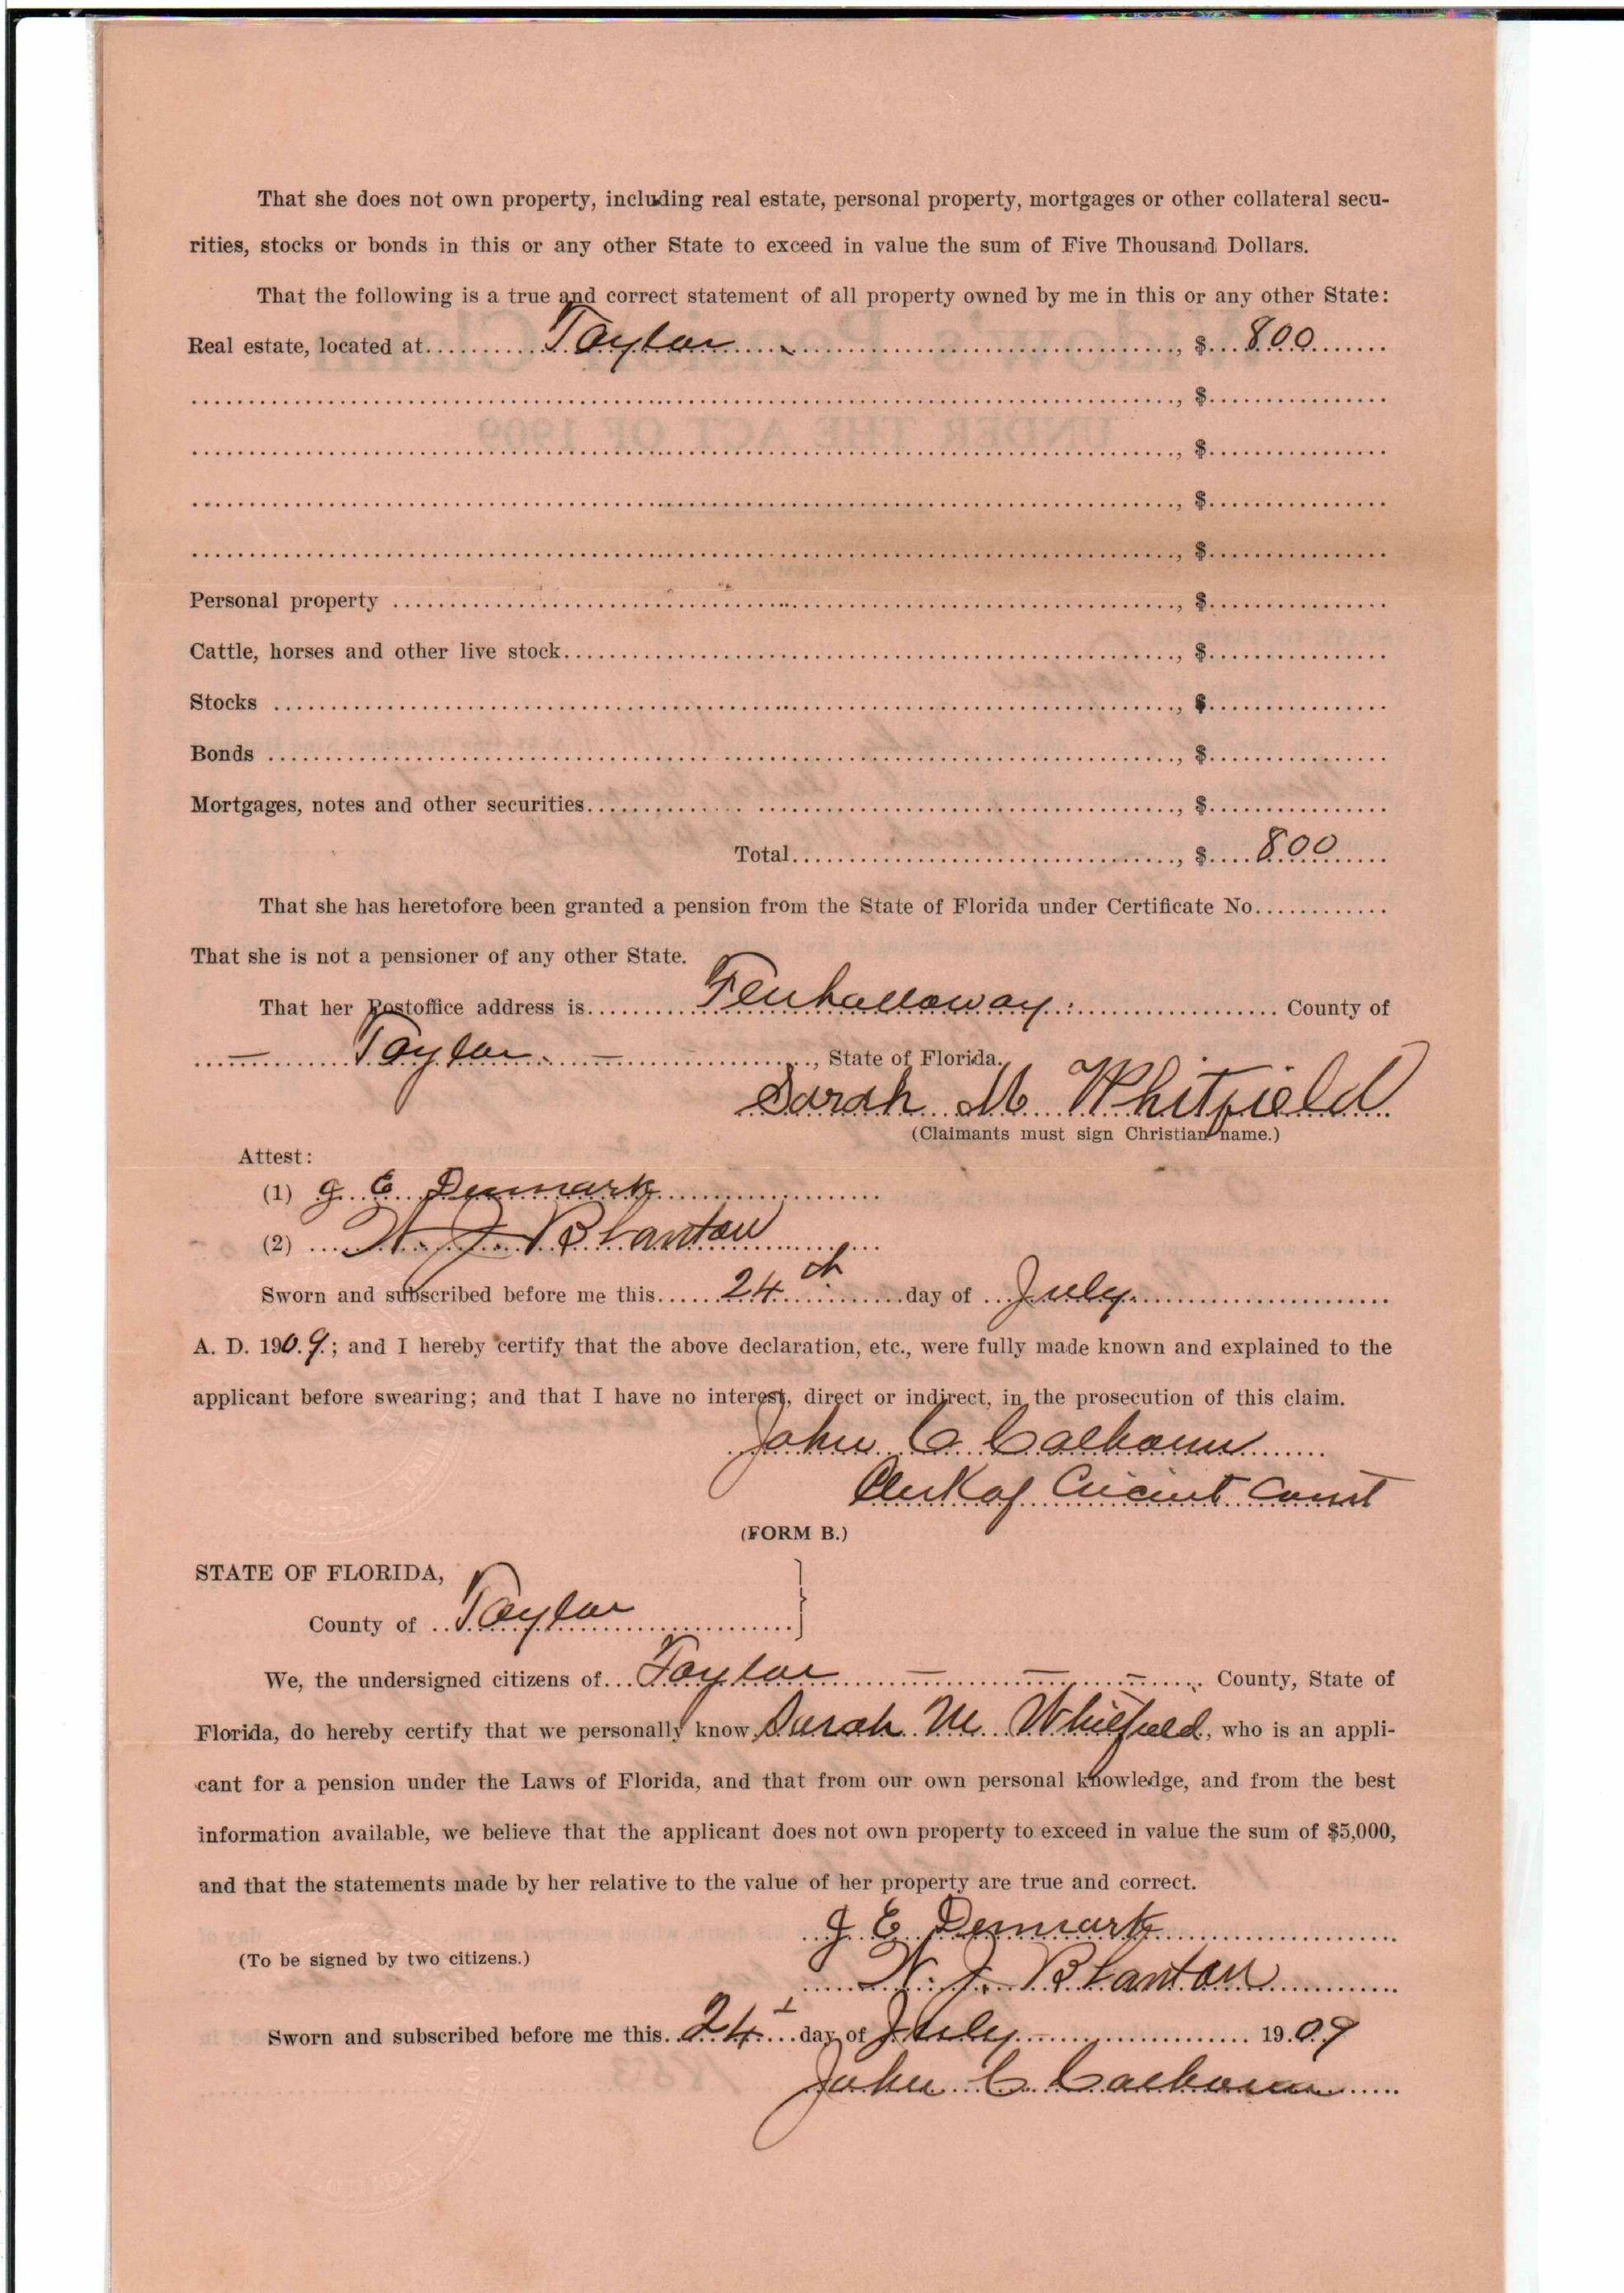 That she does not own property, including real estate, personal property, mortgages or other collateral secu-
rities, stocks or bonds in this or any other State to exceed in value the sum of Five Thousand Dollars.
That the following is a true and correct statement of all property owned by me in this or any other State:
Real estate, located at Taylor, $ 800
, $
, $
, $
, $
Personal property, $
Cattle, horses and other live stock, $
Stocks, $
Bonds, $
Mortgages, notes and other securities, $
Total, $ 800
That she has heretofore been granted a pension from the State of Florida under Certificate No.
That she is not a pensioner of any other State.
That her Postoffice address is Fenhalloway County of
Taylor, State of Florida.
Sarah M Whitfield
(Claimants must sign Christian name.)
Attest:
(1) J. E. Denmark
(2) W. J. Blanton
Sworn and subscribed before me this 24th day of July
A. D. 1909; and I hereby certify that the above declaration, etc., were fully made known and explained to the
applicant before swearing; and that I have no interest, direct or indirect, in the prosecution of this claim.
John C Calhoun
Clerk of Circuit Court
(FORM B.)
STATE OF FLORIDA,
County of Taylor
We, the undersigned citizens of Taylor County, State of
Florida, do hereby certify that we personally know Sarah M Whitfield, who is an appli-
cant for a pension under the Laws of Florida, and that from our own personal knowledge, and from the best
information available, we believe that the applicant does not own property to exceed in value the sum of $5,000,
and that the statements made by her relative to the value of her property are true and correct.
J E Denmark
(To be signed by two citizens.)
W. J. Blanton
Sworn and subscribed before me this 24 day of July 1909
John C Calhoun